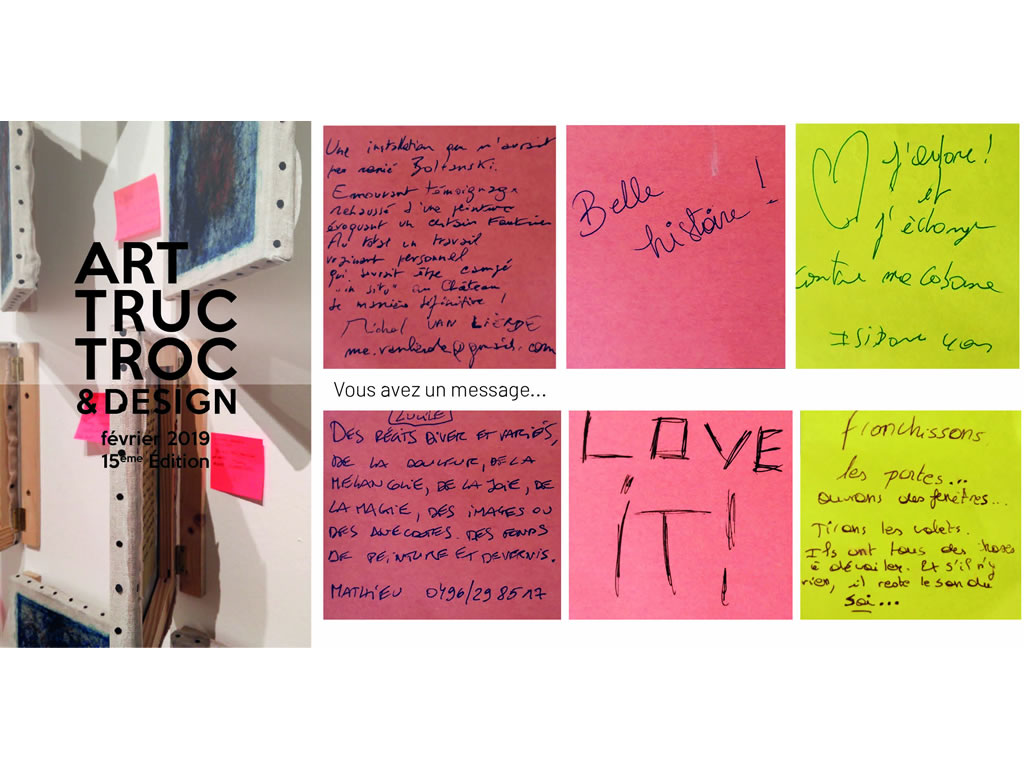 ART
TRUC
TROC
& DESIGN
février 2019
15ème Édition
Une installation que n'aurait
pas renié Boltanski.
Emouvant témoignage
rehaussé d'une peinture
évoquant un certain Fautrier
Au total un travail
vraiment personnel
qui devrait être
"in situ" au Château
de manière définitive !
Michel VAN LIERDE
Belle
histoire !
J'adore !
et
j'échange
contre ma cabane
Vous avez un message...
DES RÉCITS DIVER ET VARIÉS,
DE LA DOULEUR, DE LA
MÉLANCOLIE, DE LA JOIE, DE
LA MAGIE, DES IMAGES OU
DES ANECDOTES. DES FONDS
DE PEINTURE ET DE VERNIS.
MATHIEU 0496/29 85 17
LOVE
iT!
franchissons
les portes...
ouvrons des fenêtres...
Tirons les volets.
Ils ont tous des choses
à dévoiler. Et s'il n'y
rien, il reste le son du
soi...